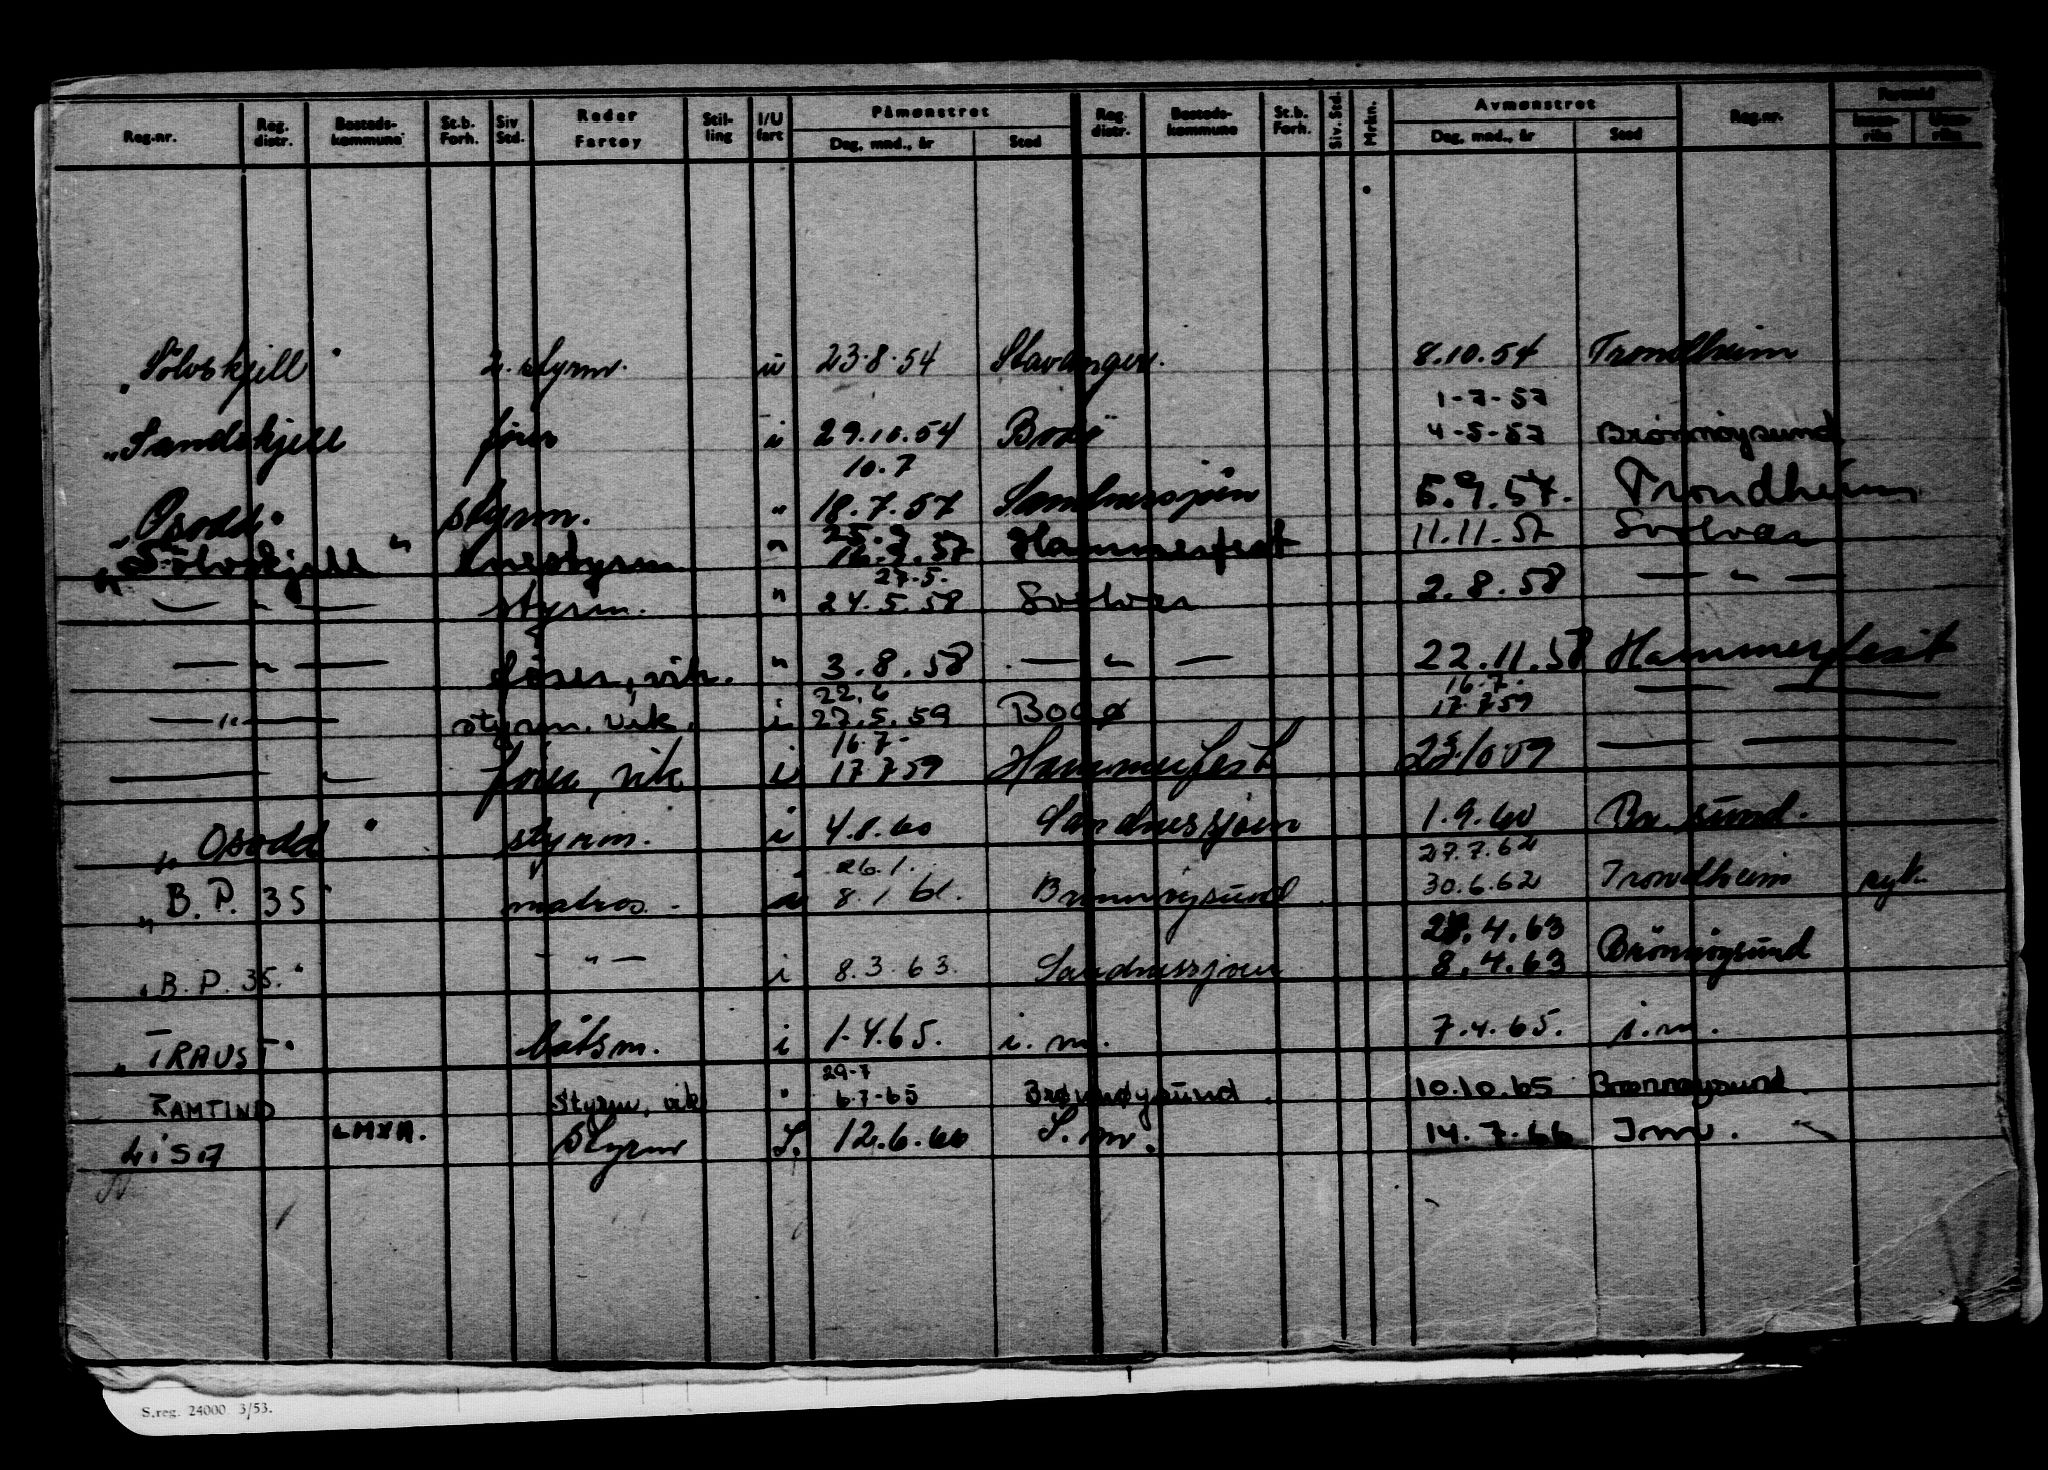 Reg.nr. Reg. distr. Bosteds-kommune St.b. Forh. Siv Std. Reder Fartøy Stil-ling I/U fart Påmønstret Dag, mnd., år Sted Reg. distr. Bosteds-kommune St.b. Forh. Siv. Std. Mrkn. Avmønstret Dag, mnd., år Sted Reg.nr.
"Sölvskjell" 2. styrm. u 23.8.54 Stavanger. 8.10.54 Trondheim
1-7-57
"Sandskjell fører i 29.10.54 Bodö 4-5-57 Brönnöysund
10.7
"Osodd" styrm. " 18.7.57 Sandnessjøen 5.9.57. Trondheim
25.9
"Sölvskjell" enestyrm " 16.9.57 Hammerfest 11.11.57 Svolvær
27.5.
— " — styrm. " 24.5.58 Svolvær 2.8.58 — " —
— " — förer, vik. " 3.8.58 — " — 22.11.58 Hammerfest
22.6 16.7.
— " — styrm. vik. i 27.5.59 Bodø 17.7.59 — —
16.7-
— " fører, vik i 17.7.59 Hammerfest — —
"Osodd" styrm. i 4.8.60 Sandnessjøen 1.9.60 Br.sund.
26.1. 27.7.62
"B.P. 35" matros. i 8.1.61. Brönnöysund 30.6.62 Trondheim syk.
28.4.63
"B.P. 35." — " — i 8.3.63. Sandnessjøen 8.4.63 Brönnöysund
"TRAUST" båtsm. i 1.4.65. i.m. 7.4.65. i.m.
29-7
RAMTIND styrm, vik " 6-7-65 Brønnøysund. 10.10.65 Brønnøysund.
LISA LMXA. Styrm I. 12.6.66 I.m. 14.7.66 Im.
S.reg. 24000 3/53.